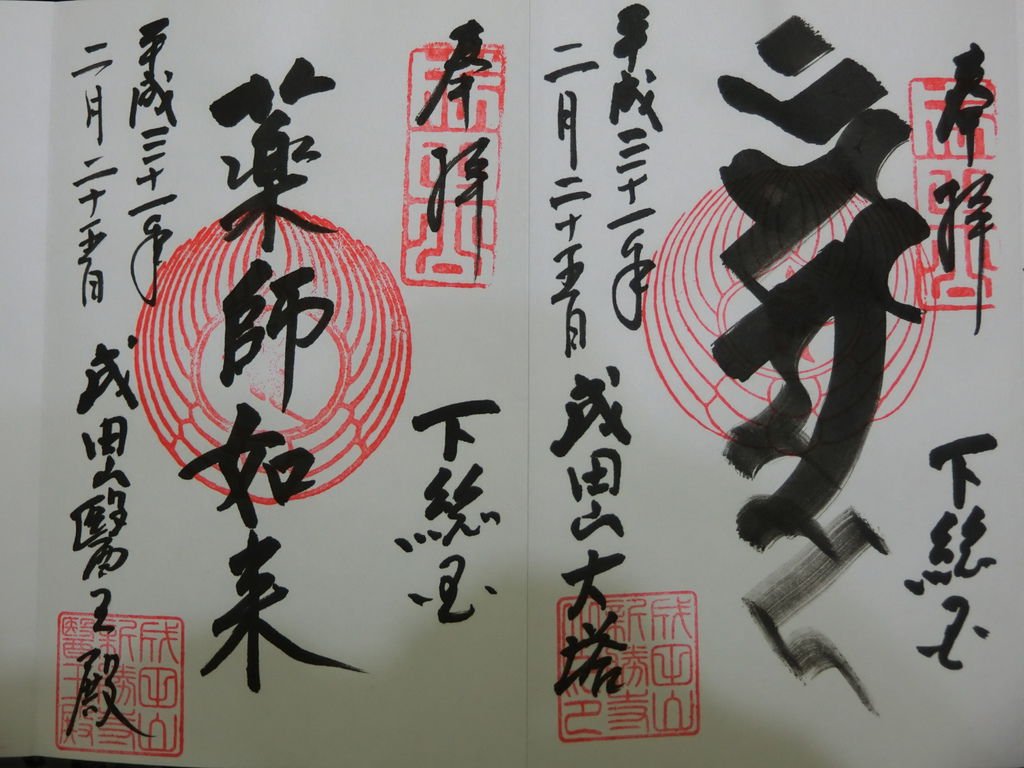 奉拝
下総国
平成三十一年
二月二十五日
成田山大塔
成田山
新勝寺
奉拝
下総国
薬師如来
平成三十一年
二月二十五日
成田山醫王殿
成田山
新勝寺
醫王殿